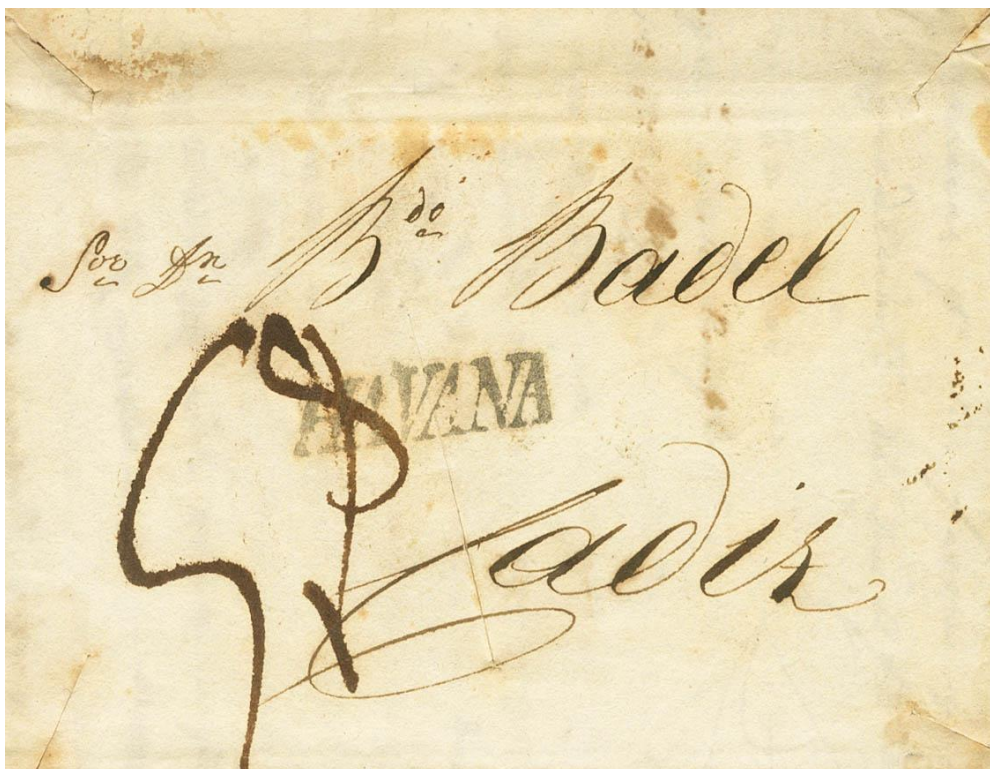 Sor Dn Bdo Badel
HAVANA
Cadiz